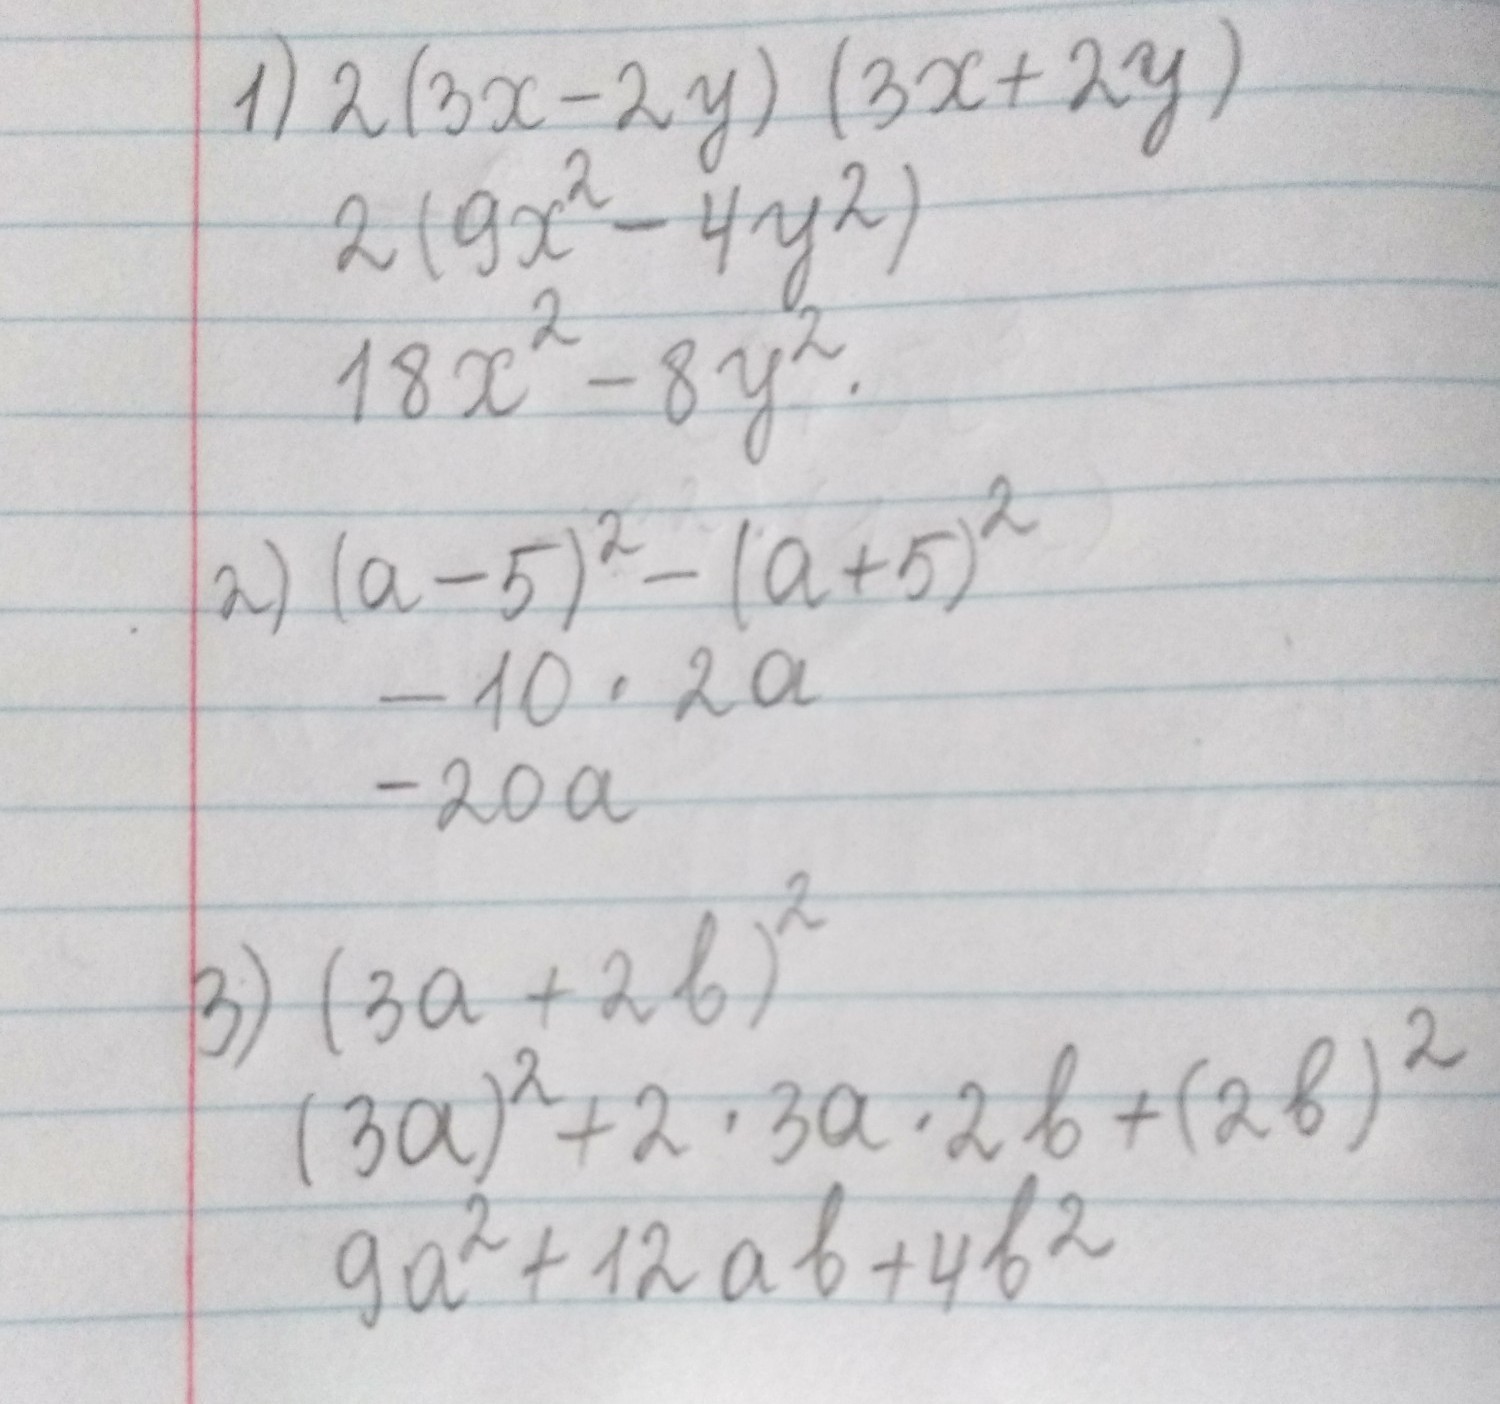 1) 2(3x-2y)(3x+2y)
2(9x²-4y²)
18x²-8y².
2) (a-5)²-(a+5)²
-10·2a
-20a
3) (3a+2b)²
(3a)²+2·3a·2b+(2b)²
9a²+12ab+4b²